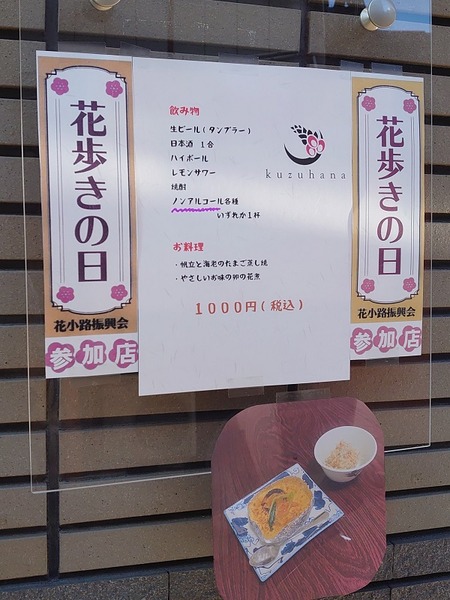 花歩きの日
花小路振興会
参加店
飲み物
生ビール(タンブラー)
日本酒 1合
ハイボール
レモンサワー
焼酎
ノンアルコール各種
いずれか1杯
お料理
・帆立と海老のたまご蒸し焼
・やさしいお味の卯の花煮
1000円(税込)
kuzuhana
花歩きの日
花小路振興会
参加店